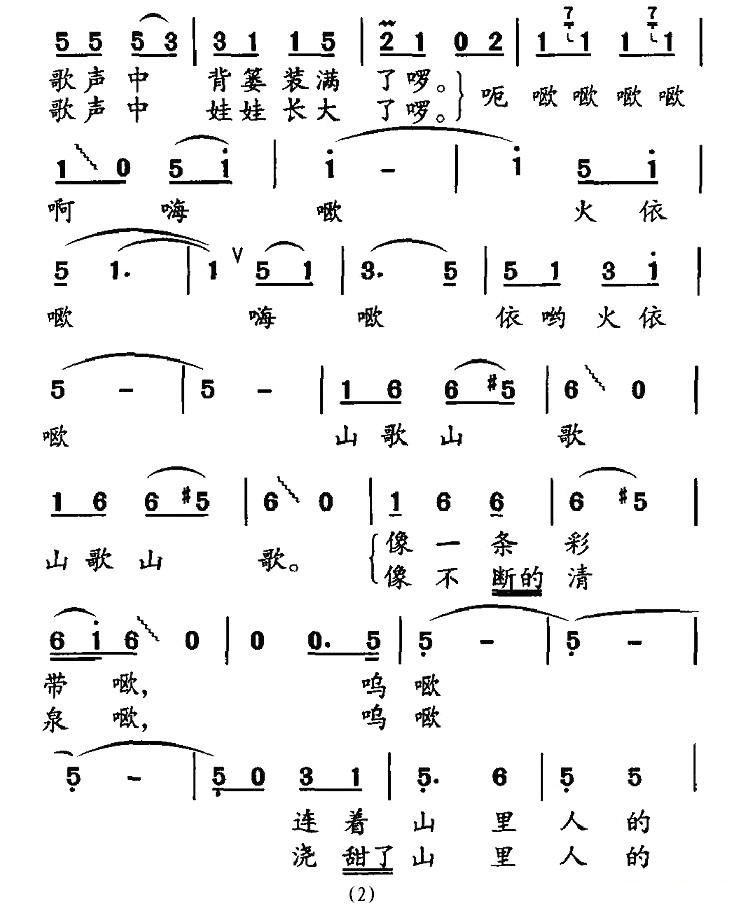 5 5 5 3 | 3 1 1 5 | 2 1 0 2 | 7 1 1 7 1 1 |
歌声中 背篓装满 了啰。 呃 噷噷噷噷
歌声中 娃娃长大 了啰。
1 0 5 i | i - | i 5 i |
啊 嗨 噷 火 依
5 1. | 1 ∨ 5 1 | 3. 5 | 5 1 3 i |
噷 嗨 噷 依哟火依
5 - | 5 - | 1 6 6 #5 | 6 0 |
噷 山歌山 歌
1 6 6 #5 | 6 0 | 1 6 6 | 6 #5 |
山歌山 歌。 像一条 彩
像不断的清
6 i 6 0 | 0 0. 5 | 5 - | 5 - |
带 噷, 呜 噷
泉 噷, 呜 噷
5 - | 5 0 3 1 | 5. 6 | 5 5 |
连着 山 里 人 的
浇甜了 山 里 人 的
(2)